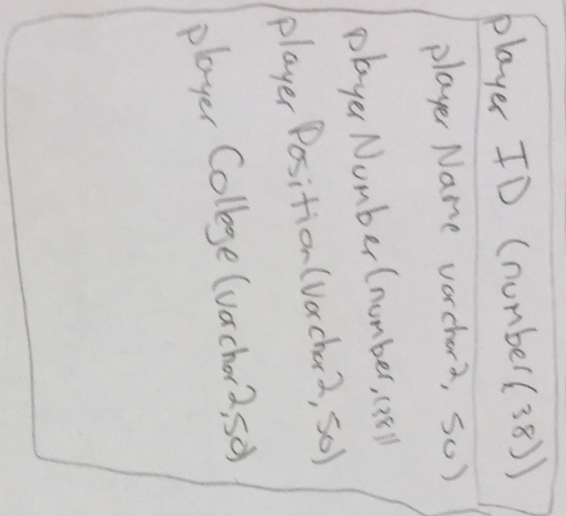 player ID (number(38))
player Name varchar2, 50)
player Number (number,(38))
player Position (varchar2, 50)
player College (varchar2,50)